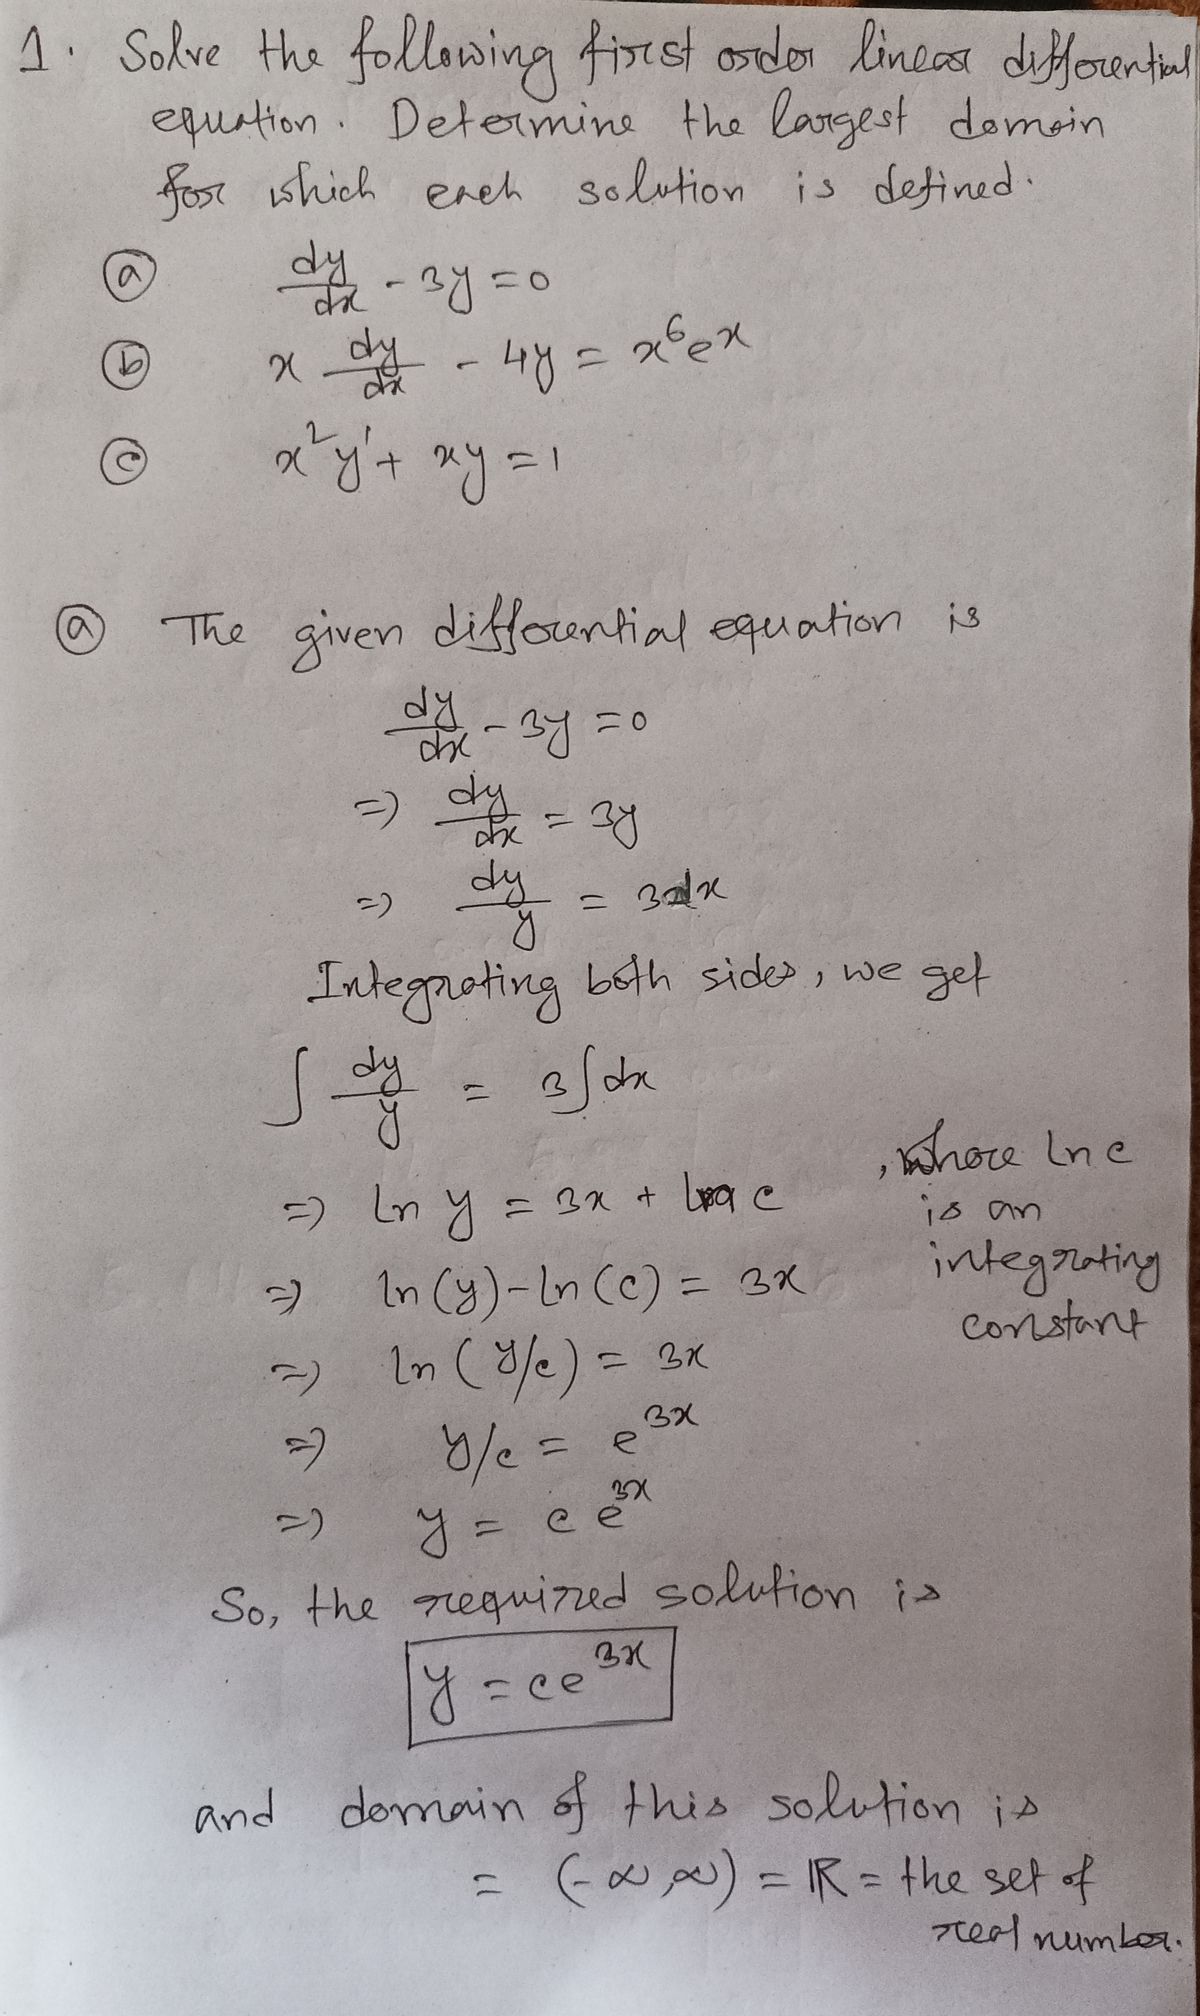 1. Solve the following first order linear differential
equation. Determine the largest domain
for which each solution is defined.
ⓐ dy/dx - 3y = 0
ⓑ x dy/dx - 4y = x⁶eˣ
ⓒ x²y' + xy = 1
ⓐ The given differential equation is
dy/dx - 3y = 0
=> dy/dx = 3y
=> dy/y = 3dx
Integrating both sides, we get
∫ dy/y = 3∫dx
=> ln y = 3x + ln c , where ln c
is an
integrating
constant
=> ln(y) - ln(c) = 3x
=> ln(y/c) = 3x
=> y/c = e³ˣ
=> y = c e³ˣ
So, the required solution is
y = ce³ˣ
and domain of this solution is
= (-∞,∞) = ℝ = the set of
real number.